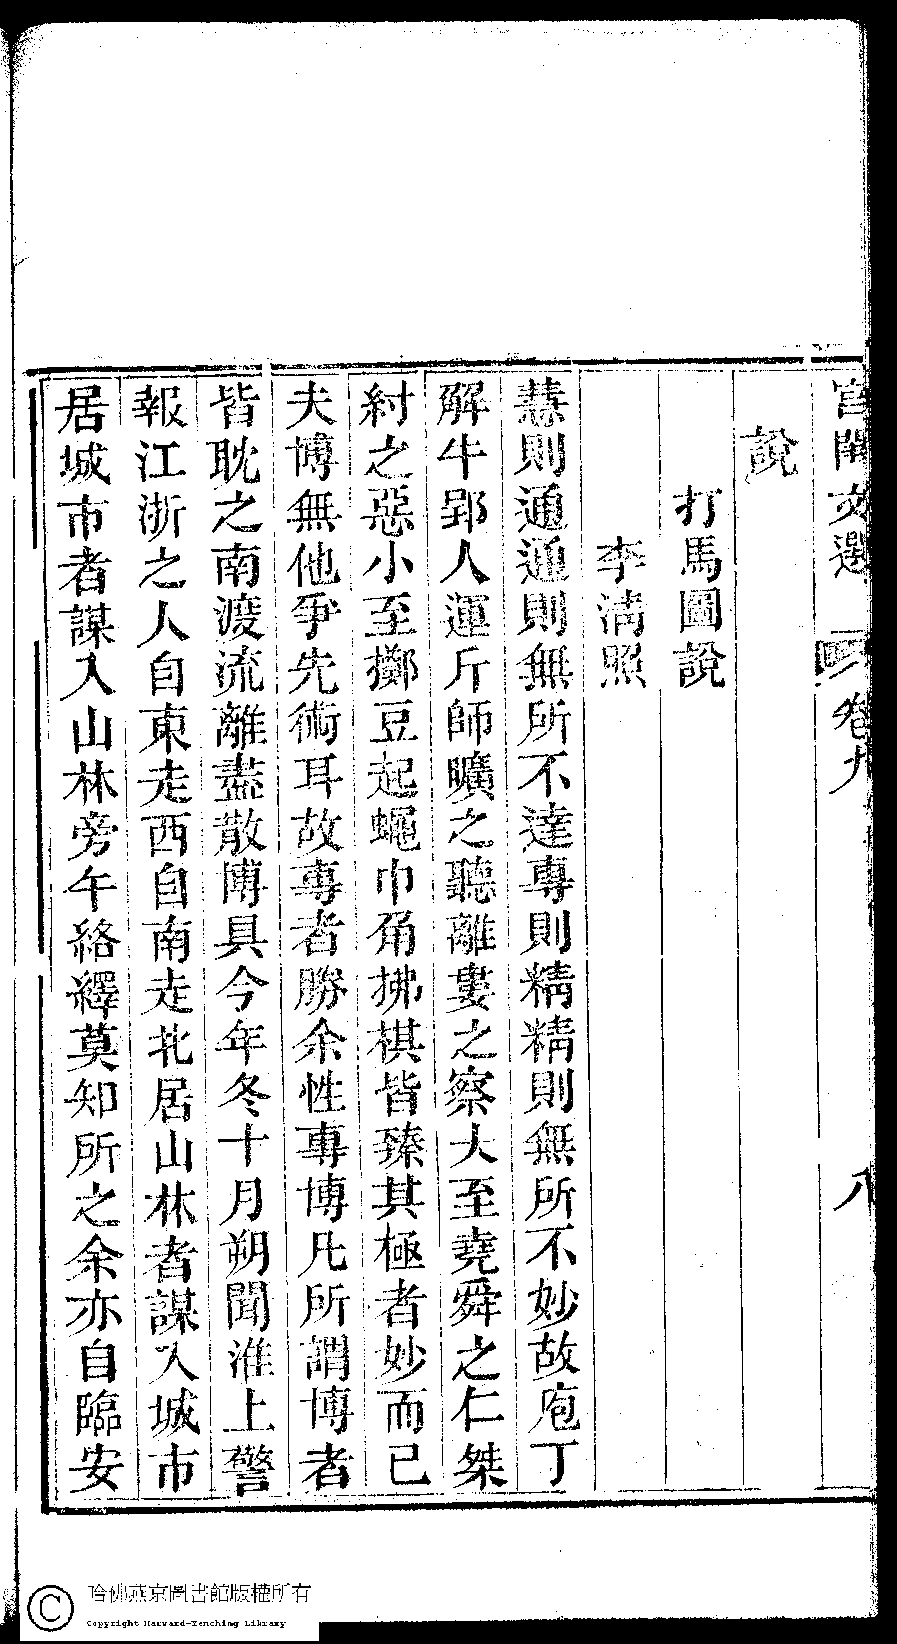 宮閨文選 卷九 八
說
打馬圖說
李淸照
慧則通通則無所不達專則精精則無所不妙故庖丁
解牛郢人運斤師曠之聽離婁之察大至堯舜之仁桀
紂之惡小至擲豆起蠅巾角拂棋皆臻其極者妙而已
夫博無他爭先術耳故專者勝余性專博凡所謂博者
皆耽之南渡流離盡散博具今年冬十月朔聞淮上警
報江浙之人自東走西自南走北居山林者謀入城市
居城市者謀入山林旁午絡繹莫知所之余亦自臨安
哈佛燕京圖書館版權所有
Copyright Harvard-Yenching Library